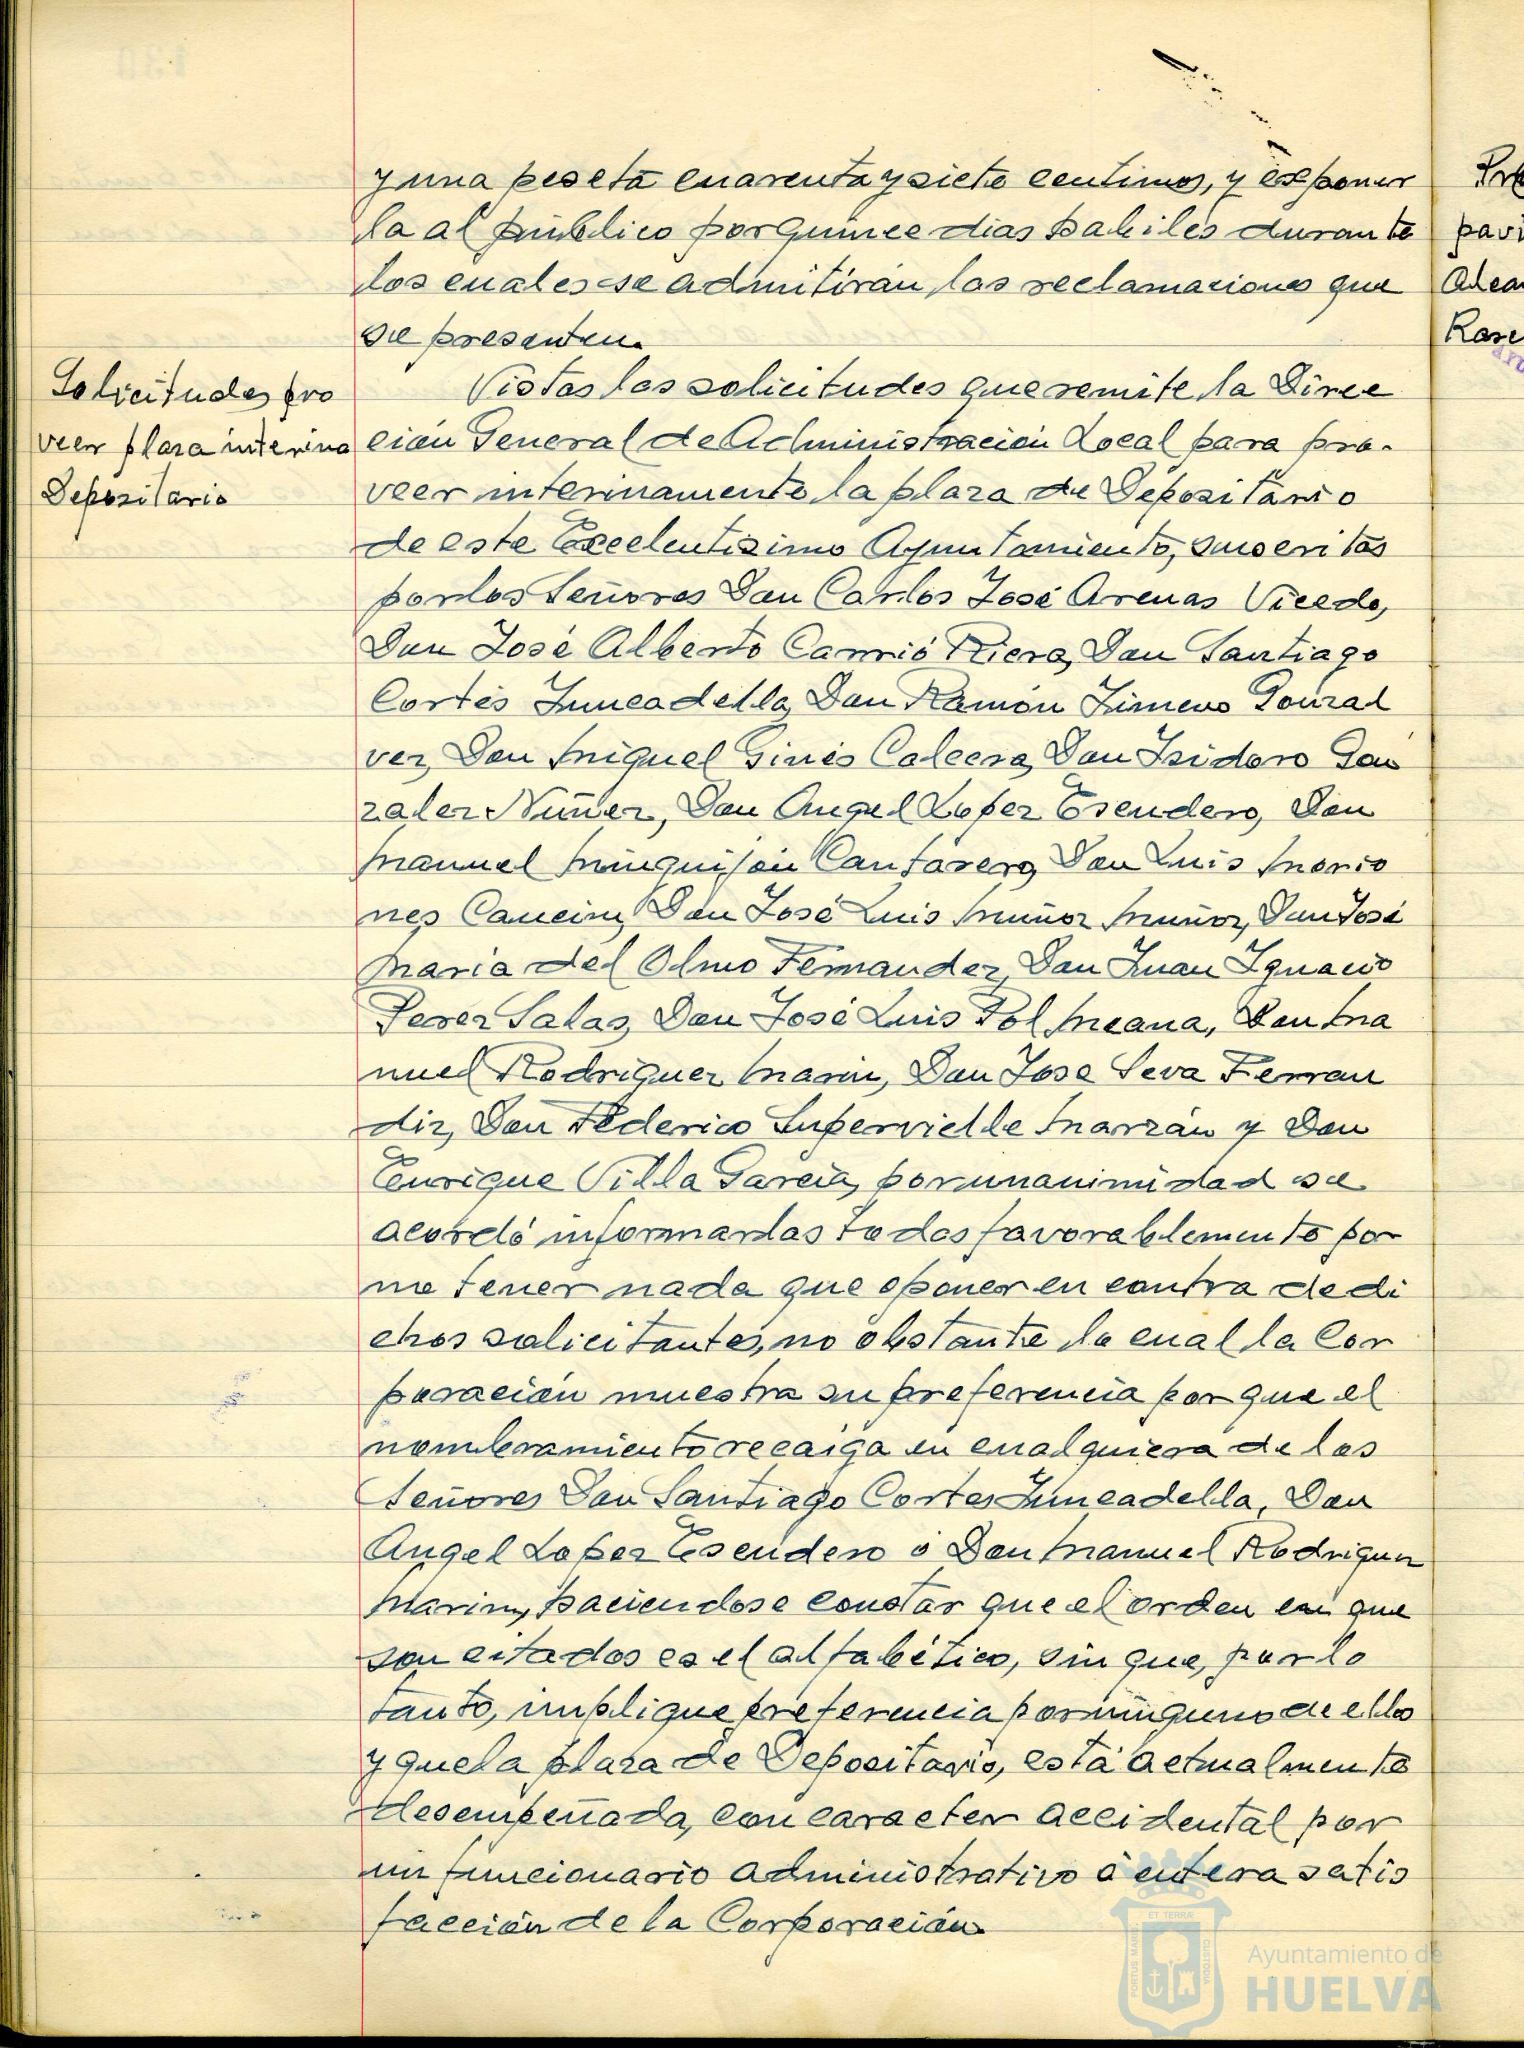 y una peseta cuarenta y siete centimos, y exponer
la al público por quince dias habiles durante
los cuales se admitirán las reclamaciones que
se presenten.
Solicitudes pro
veer plaza interina
Depositario
Vistas las solicitudes que remite la Direc
ción General de Administración Local para pro-
veer interinamente la plaza de Depositario
de este Excelentisimo Ayuntamiento, suscritas
por los Señores Don Carlos José Arenas Vicedo,
Don José Alberto Carrió Riera, Don Santiago
Cortés Juncadella, Don Ramón Jimeno Gonzal
vez, Don Miguel Ginés Calcera, Don Isidoro Gon
zalez Nuñez, Don Angel Lopez Escudero, Don
Manuel Minguijón Cantarero, Don Luis Morio
nes Cancira, Don José Luis Muñoz Muñoz, Don José
Maria del Olmo Fernandez, Don Juan Ignacio
Perez Salas, Don José Luis Pol Meana, Don Ma
nuel Rodriguez Marin, Don Jose Seva Ferran
diz, Don Federico Supervielle Marzán y Don
Enrique Villa Garcia, por unanimidad se
acordó informarlas todas favorablemente por
no tener nada que oponer en contra de di
chos solicitantes, no obstante lo cual la Cor
poración muestra su preferencia por que el
nombramiento recaiga en cualquiera de los
Señores Don Santiago Cortes Juncadella, Don
Angel Lopez Escudero ó Don Manuel Rodriguez
Marin, haciendose constar que el orden en que
son citados es el alfabético, sin que, por lo
tanto, implique preferencia por ninguno de ellos
y que la plaza de Depositario, está actualmente
desempeñada, con caracter accidental por
un funcionario administrativo á entera satis
facción de la Corporación.
pavi
ET TERRÆ
PORTUS MARIS
CUSTODIA
Ayuntamiento de
HUELVA